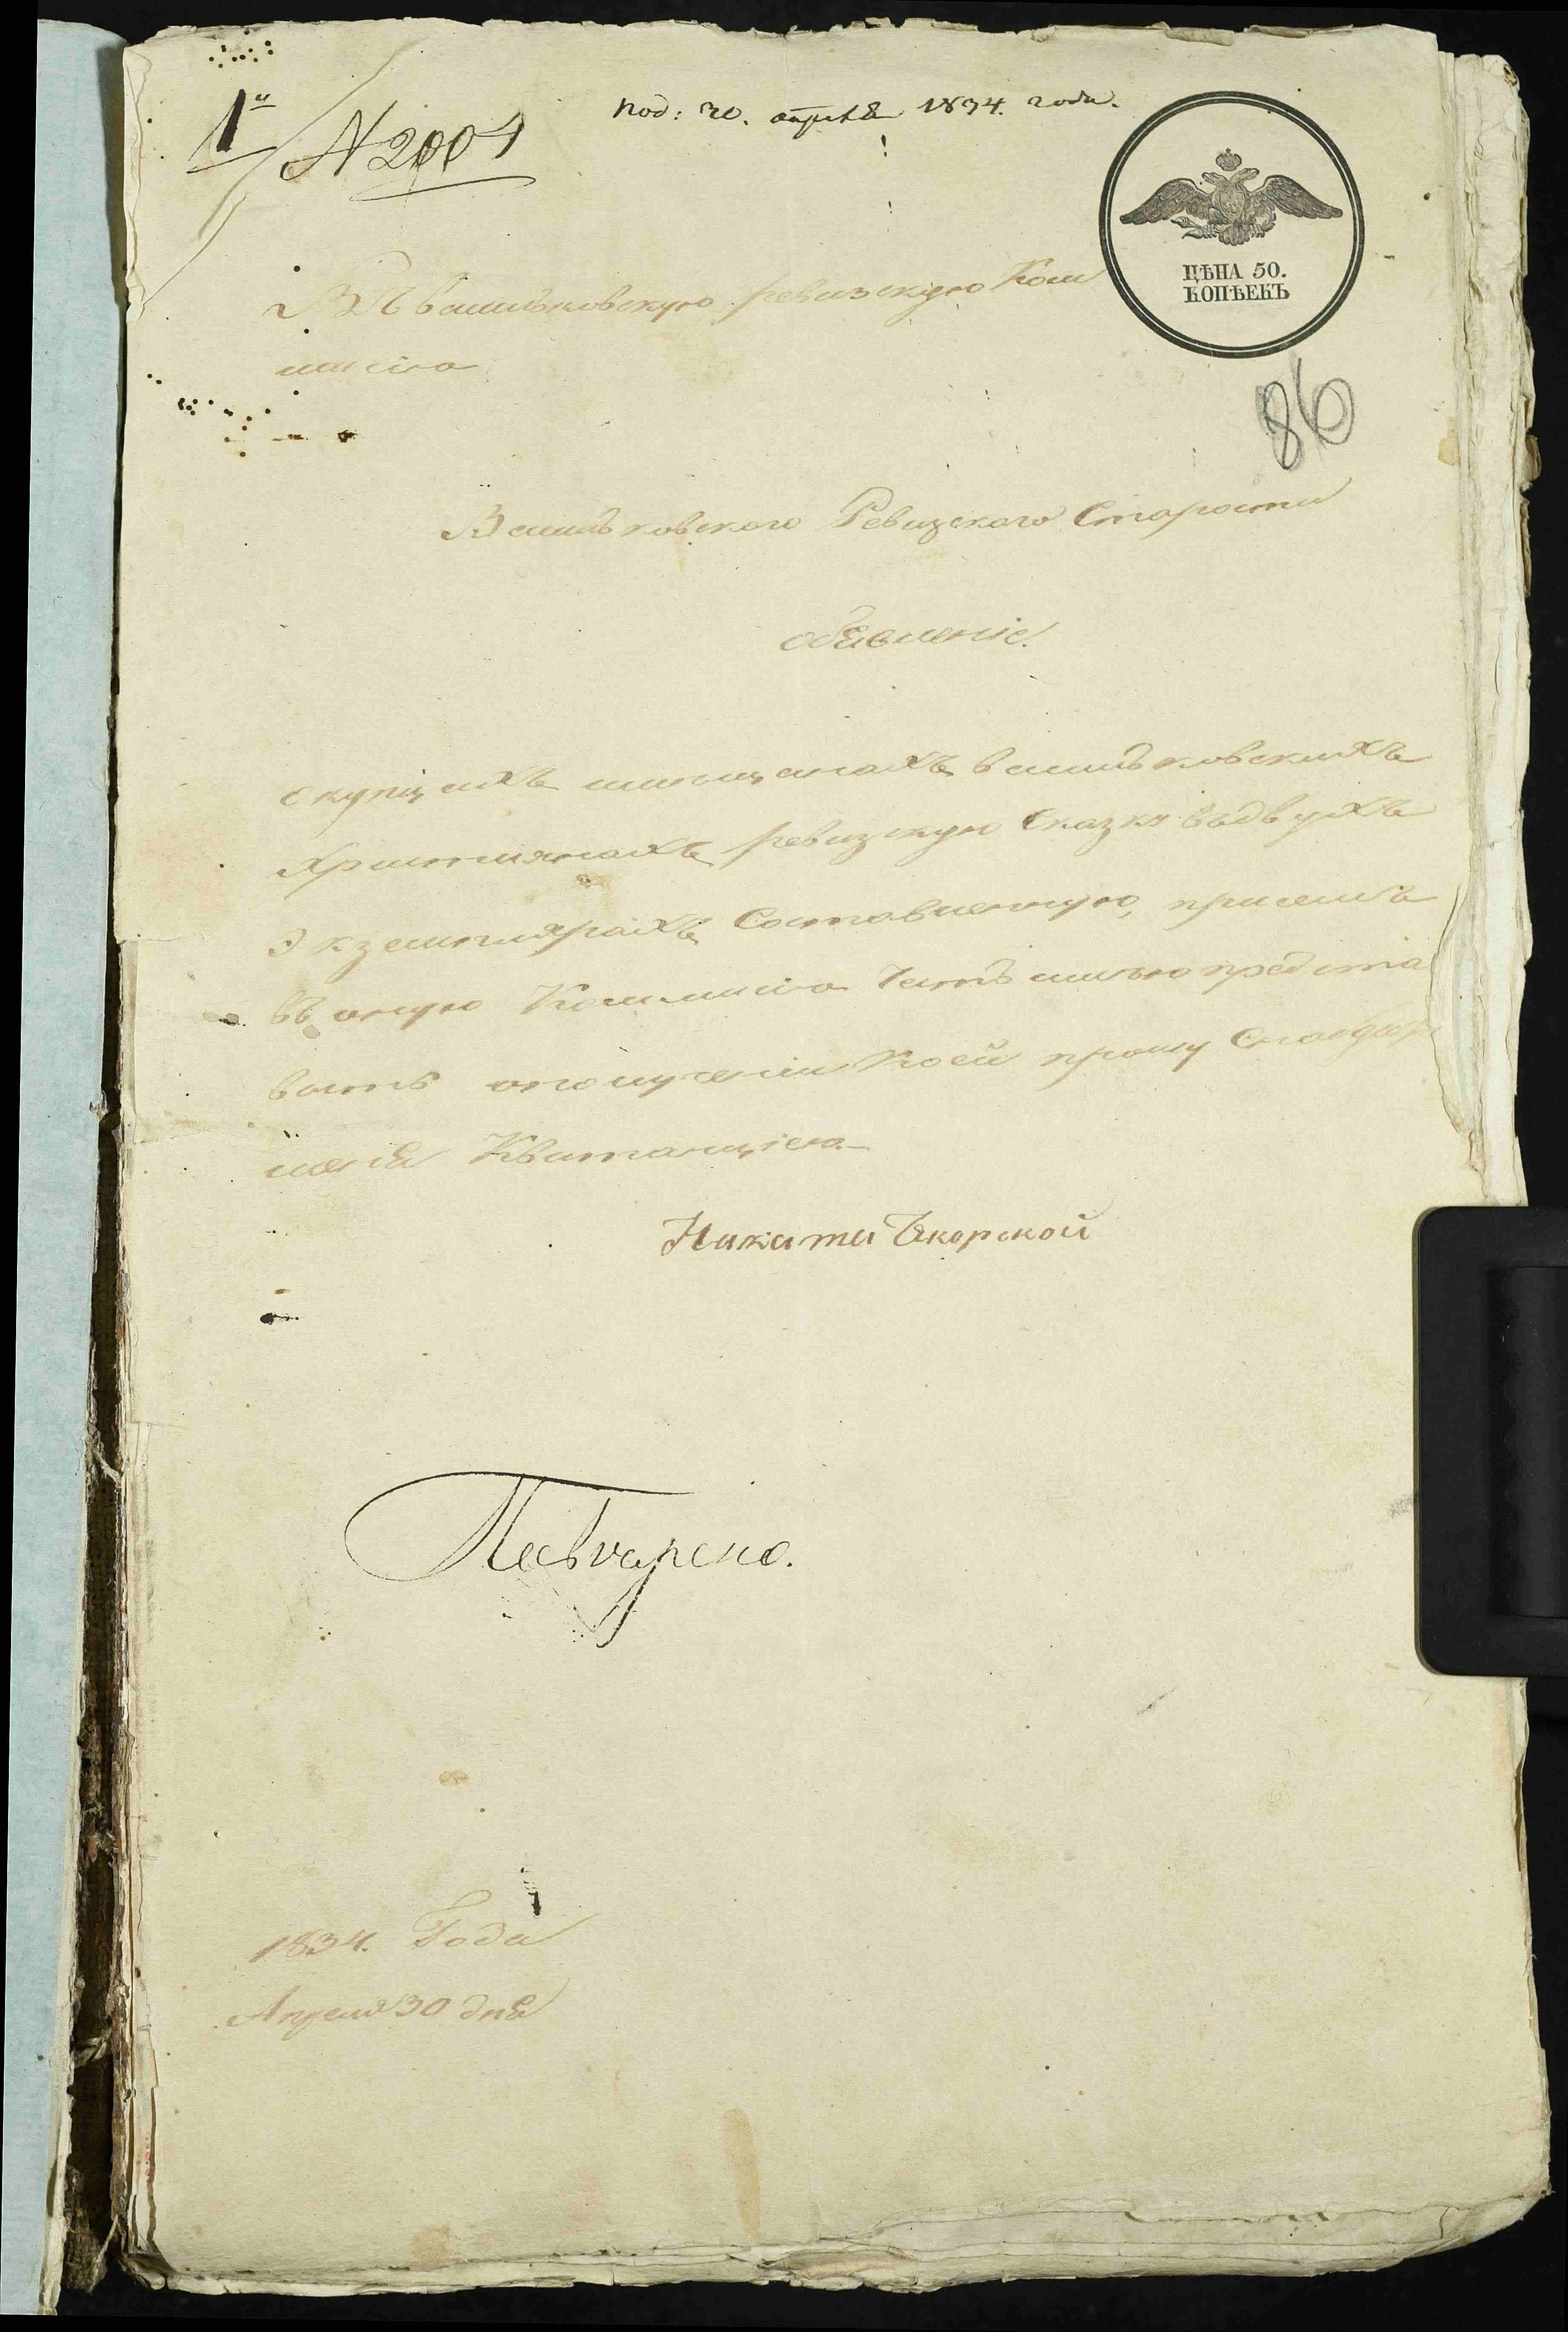 1й
N 2001
Под: 30. апреля 1834. года.
ЦѢНА 50.
КОПѢЕКЪ
86
Въ васильковскую ревизскую Ком
мисію
Васильковского Ревизского Старосты
обявленіе.
о купцахъ мищанахъ васильковскихъ
християнахъ ревизскую Сказку въ двухъ
Экземплярахъ Составленную, присемъ
въ оную Коммисію Честь имею предста
вить о получении коей прошу Снабдить
меня Квитанціею.
Никита
1834. Года
Апреля 30 дня